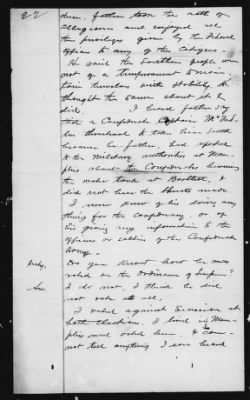 22
them, father took the oath of
allegiance and enjoyed all
the privileges given by the Federal
Officers to any of the Citizens.
He said the Southern people were
not of a temperament to
with stability. He
thought the same about it.
I heard father say
that a Confederate Captain
threatened to take him South
because he, father, had reported
to the Military authorities at Mem-
phis about the Confederates burning
the water tank at Bartlett. I
did not hear the threats made.
I never knew of his doing any
thing for the confederacy, or of
his giving any information to the
officers or soldiers of the Confederate
Army.
Do you know how he
voted on the Ordinance of
Ans.
I do not, I think he did
not vote at all.
I voted against Secession at
both elections, I lived in Mem-
phis and voted here & can-
not tell anything I ever heard